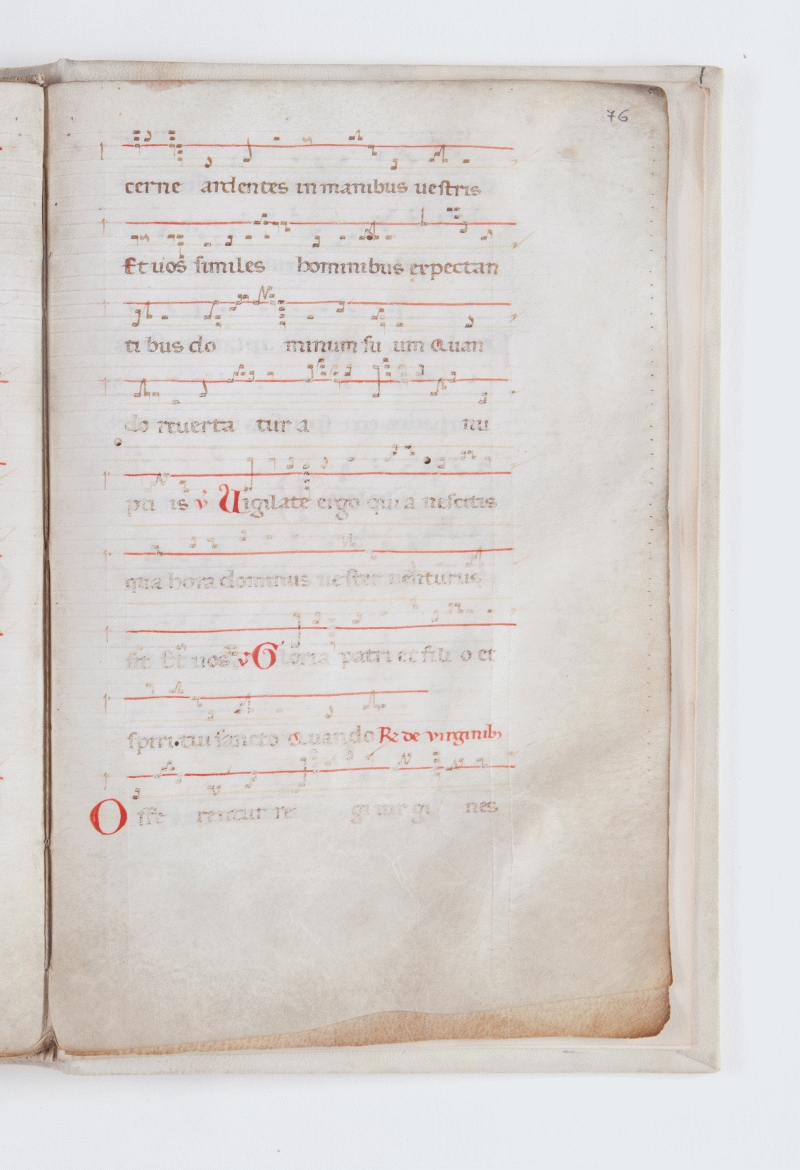 76
cerne ardentes in manibus uestris
Et uos similes hominibus expectan
ti bus do minum su um Quan
do reuerta tur a nu
pti is v̓ Uigilate ergo qui a nescitis
qua hora dominus uester uenturus
sit Et uos v̓ Gloria patri et fili o et
spiri tui sancto Quando R̵ de virginib᷒
O ffe rentur re gi uir gi nes